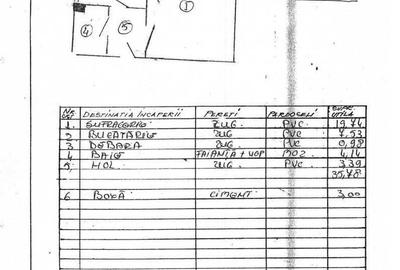 1
4
5
NR. CRT DESTINATIA ÎNCAPERII PERETI PARDOSELI SUPR. UTILA
1. SUFRAGERIE ZUG PVC 19,74
2 BUCATARIE ZUG PVC 7,53
3 DEBARA ZUG PVC 0,98
4 BAIE FAIANȚĂ + VOP MOZ 4,14
5, HOL ZUG PVC 3,39
35,78
6 BOXĂ CIMENT 3,00